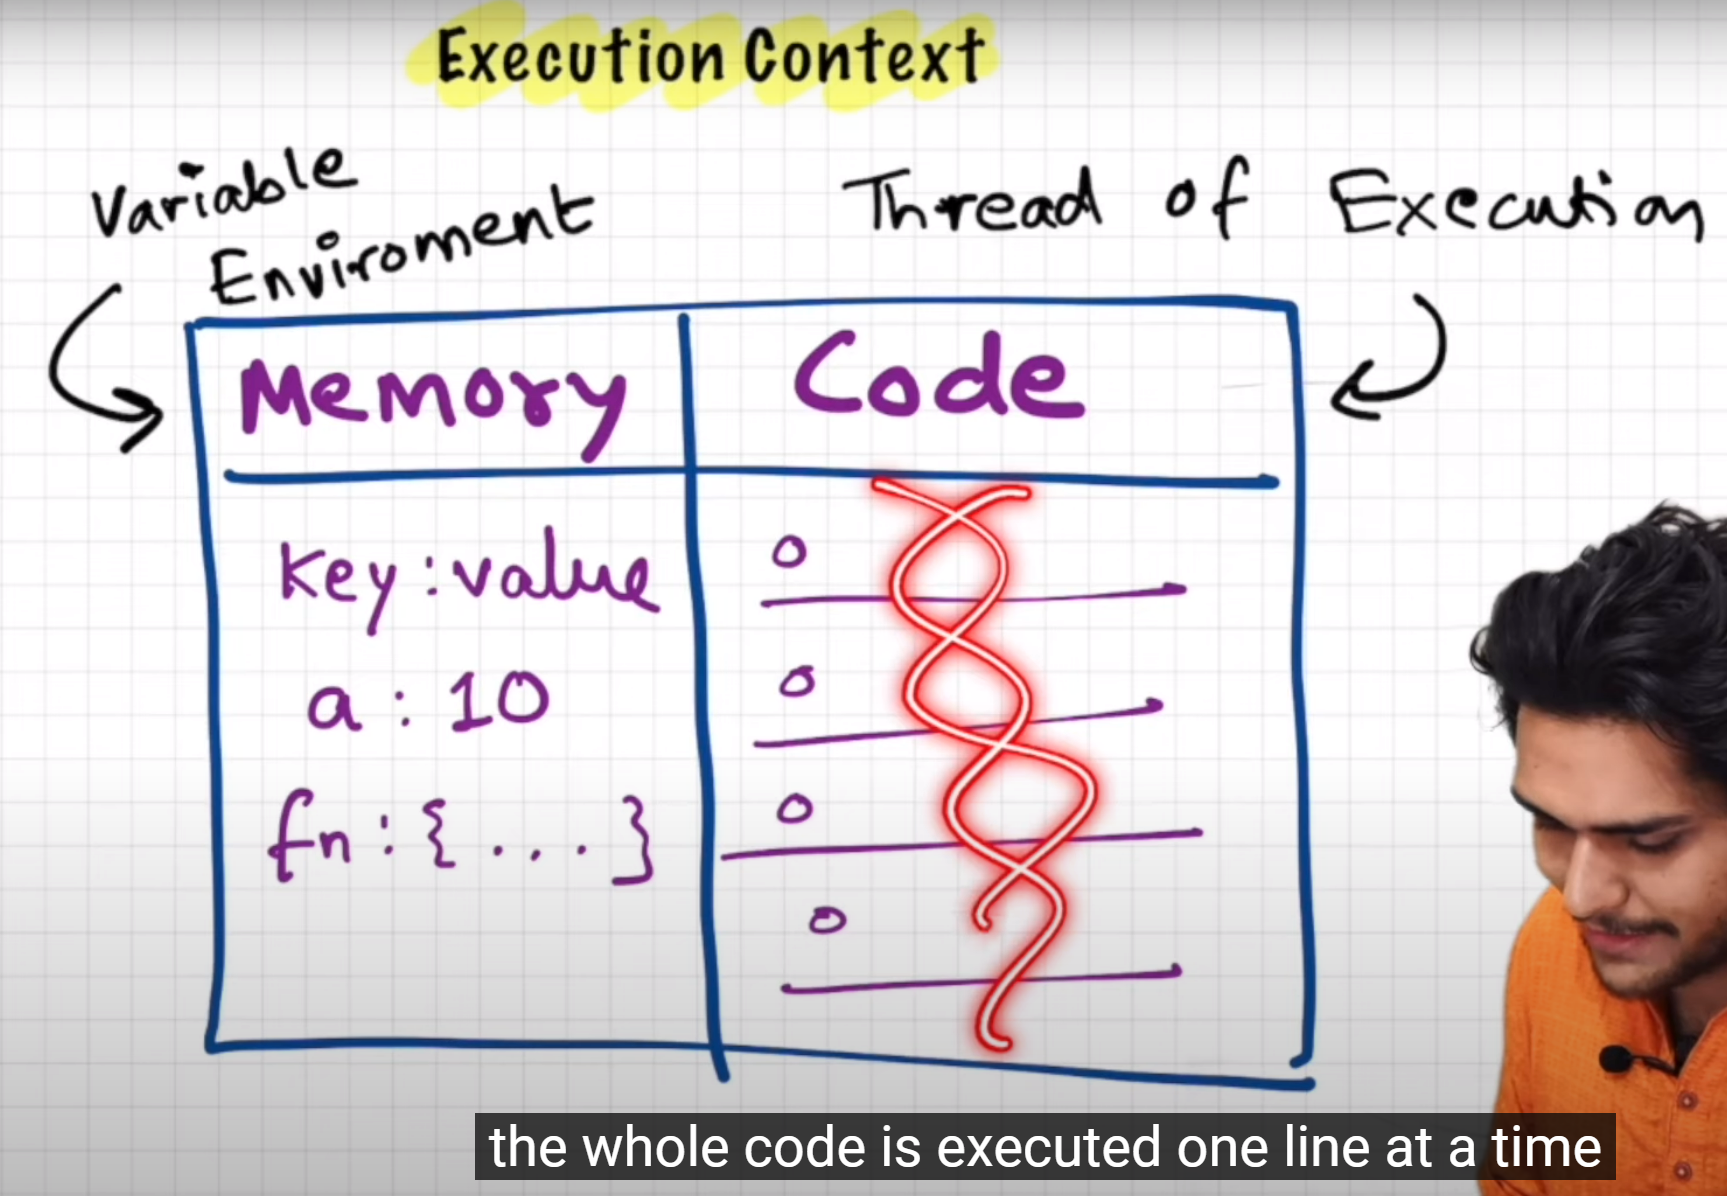 Execution Context
Variable
Enviroment
Thread of Execution
Memory
Code
key : value
a : 10
fn : { . . . }
o
o
o
o
the whole code is executed one line at a time